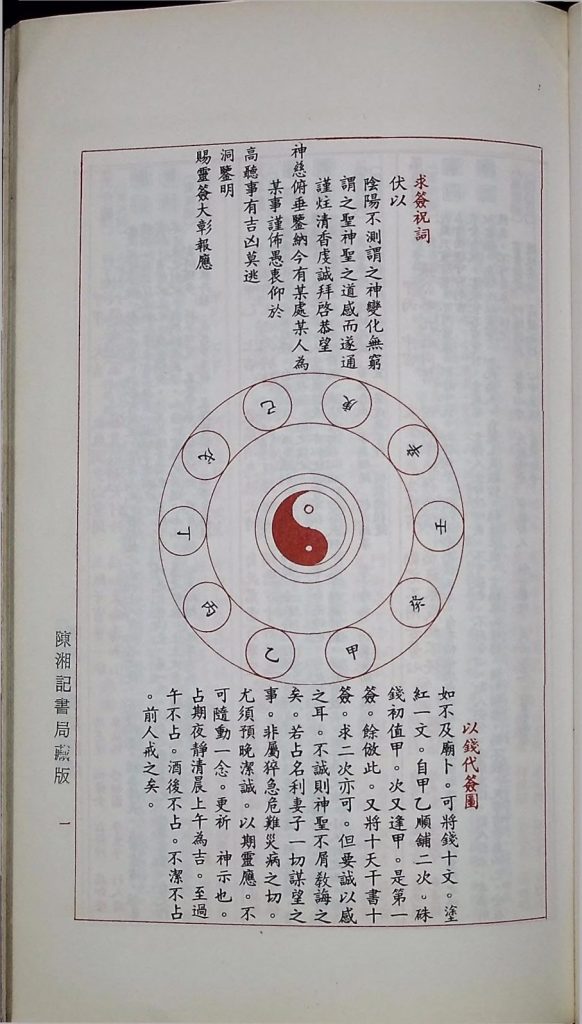 求簽祝詞
伏以
陰陽不測謂之神變化無窮
謂之聖神聖之道感而遂通
謹炷清香虔誠拜啓恭望
神慈俯垂鑒納今有某處某人為
某事謹佈愚衷仰於
高聽事有吉凶莫逃
洞鑒明
賜靈簽大彰報應
甲
乙
丙
丁
戊
己
庚
辛
壬
癸
以錢代簽圖
如不及廟卜。可將錢十文。塗
紅一文。自甲乙順鋪二次。硃
錢初值甲。次又逢甲。是第一
簽。餘倣此。又將十天干書十
簽。求二次亦可。但要誠以感
之耳。不誠則神聖不屑教誨之
矣。若占名利妻子一切謀望之
事。非屬猝急危難災病之切。
尤須預晚潔誠。以期靈應。不
可隨動一念。更祈 神示也。
占期夜靜清晨上午為吉。至過
午不占。酒後不占。不潔不占
。前人戒之矣。
陳湘記書局藏版
一